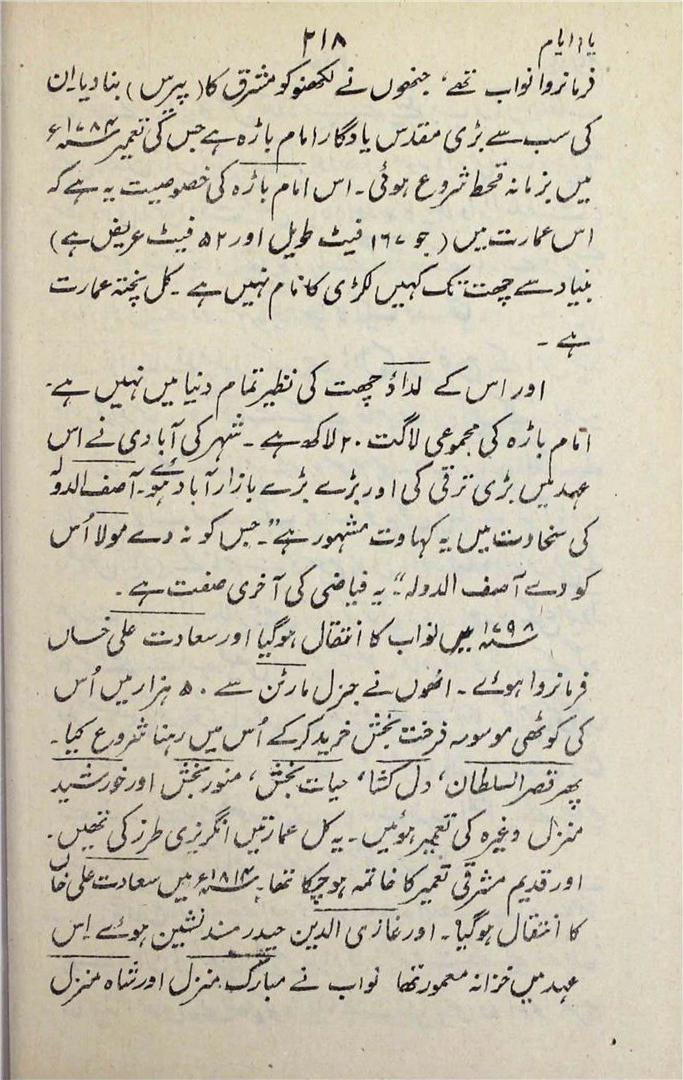 یاد ایام ۲۱۸
فرمانروا نواب تھے، جنھوں نے لکھنؤ کو مشرق کا (پیرس) بنا دیا۔ ان
کی سب سے بڑی مقدس یادگار امام باڑہ ہے جس کی تعمیر ۱۷۸۴ء
میں بزمانہ قحط شروع ہوئی۔ اس امام باڑہ کی خصوصیت یہ ہے کہ
اس عمارت میں (جو ۱۶۷ فیٹ طویل اور ۵۲ فیٹ عریض ہے)
بنیاد سے چھت تک کہیں لکڑی کا نام نہیں ہے۔ کل پختہ عمارت
ہے۔
اور اس کے لداؤ چھت کی نظیر تمام دنیا میں نہیں ہے۔
امام باڑہ کی مجموعی لاگت ۲۰ لاکھ ہے۔ شہر کی آبادی نے اس
عہد میں بڑی ترقی کی اور بڑے بڑے بازار آباد ہوئے۔ آصف الدولہ
کی سخاوت میں یہ کہاوت مشہور ہے "جس کو نہ دے مولا اُس
کو دے آصف الدولہ" یہ فیاضی کی آخری صفت ہے۔
۱۷۹۸ء میں نواب کا انتقال ہوگیا اور سعادت علی خاں
فرمانروا ہوئے۔ انھوں نے جنرل مارٹن سے ۵۰ ہزار میں اُس
کی کوٹھی موسومہ فرحت بخش خرید کرکے اُس میں رہنا شروع کیا۔
پھر قصر السلطان، دل کشا، حیات بخش، منور بخش اور خورشید
منزل وغیرہ کی تعمیر ہوئیں۔ یہ کل عمارتیں انگریزی طرز کی تھیں۔
اور قدیم مشرقی تعمیر کا خاتمہ ہوچکا تھا۔ ۱۸۱۴ء میں سعادت علی خاں
کا انتقال ہوگیا۔ اور غازی الدین حیدر مسند نشین ہوئے اس
عہد میں خزانہ معمور تھا نواب نے مبارک منزل اور شاہ منزل